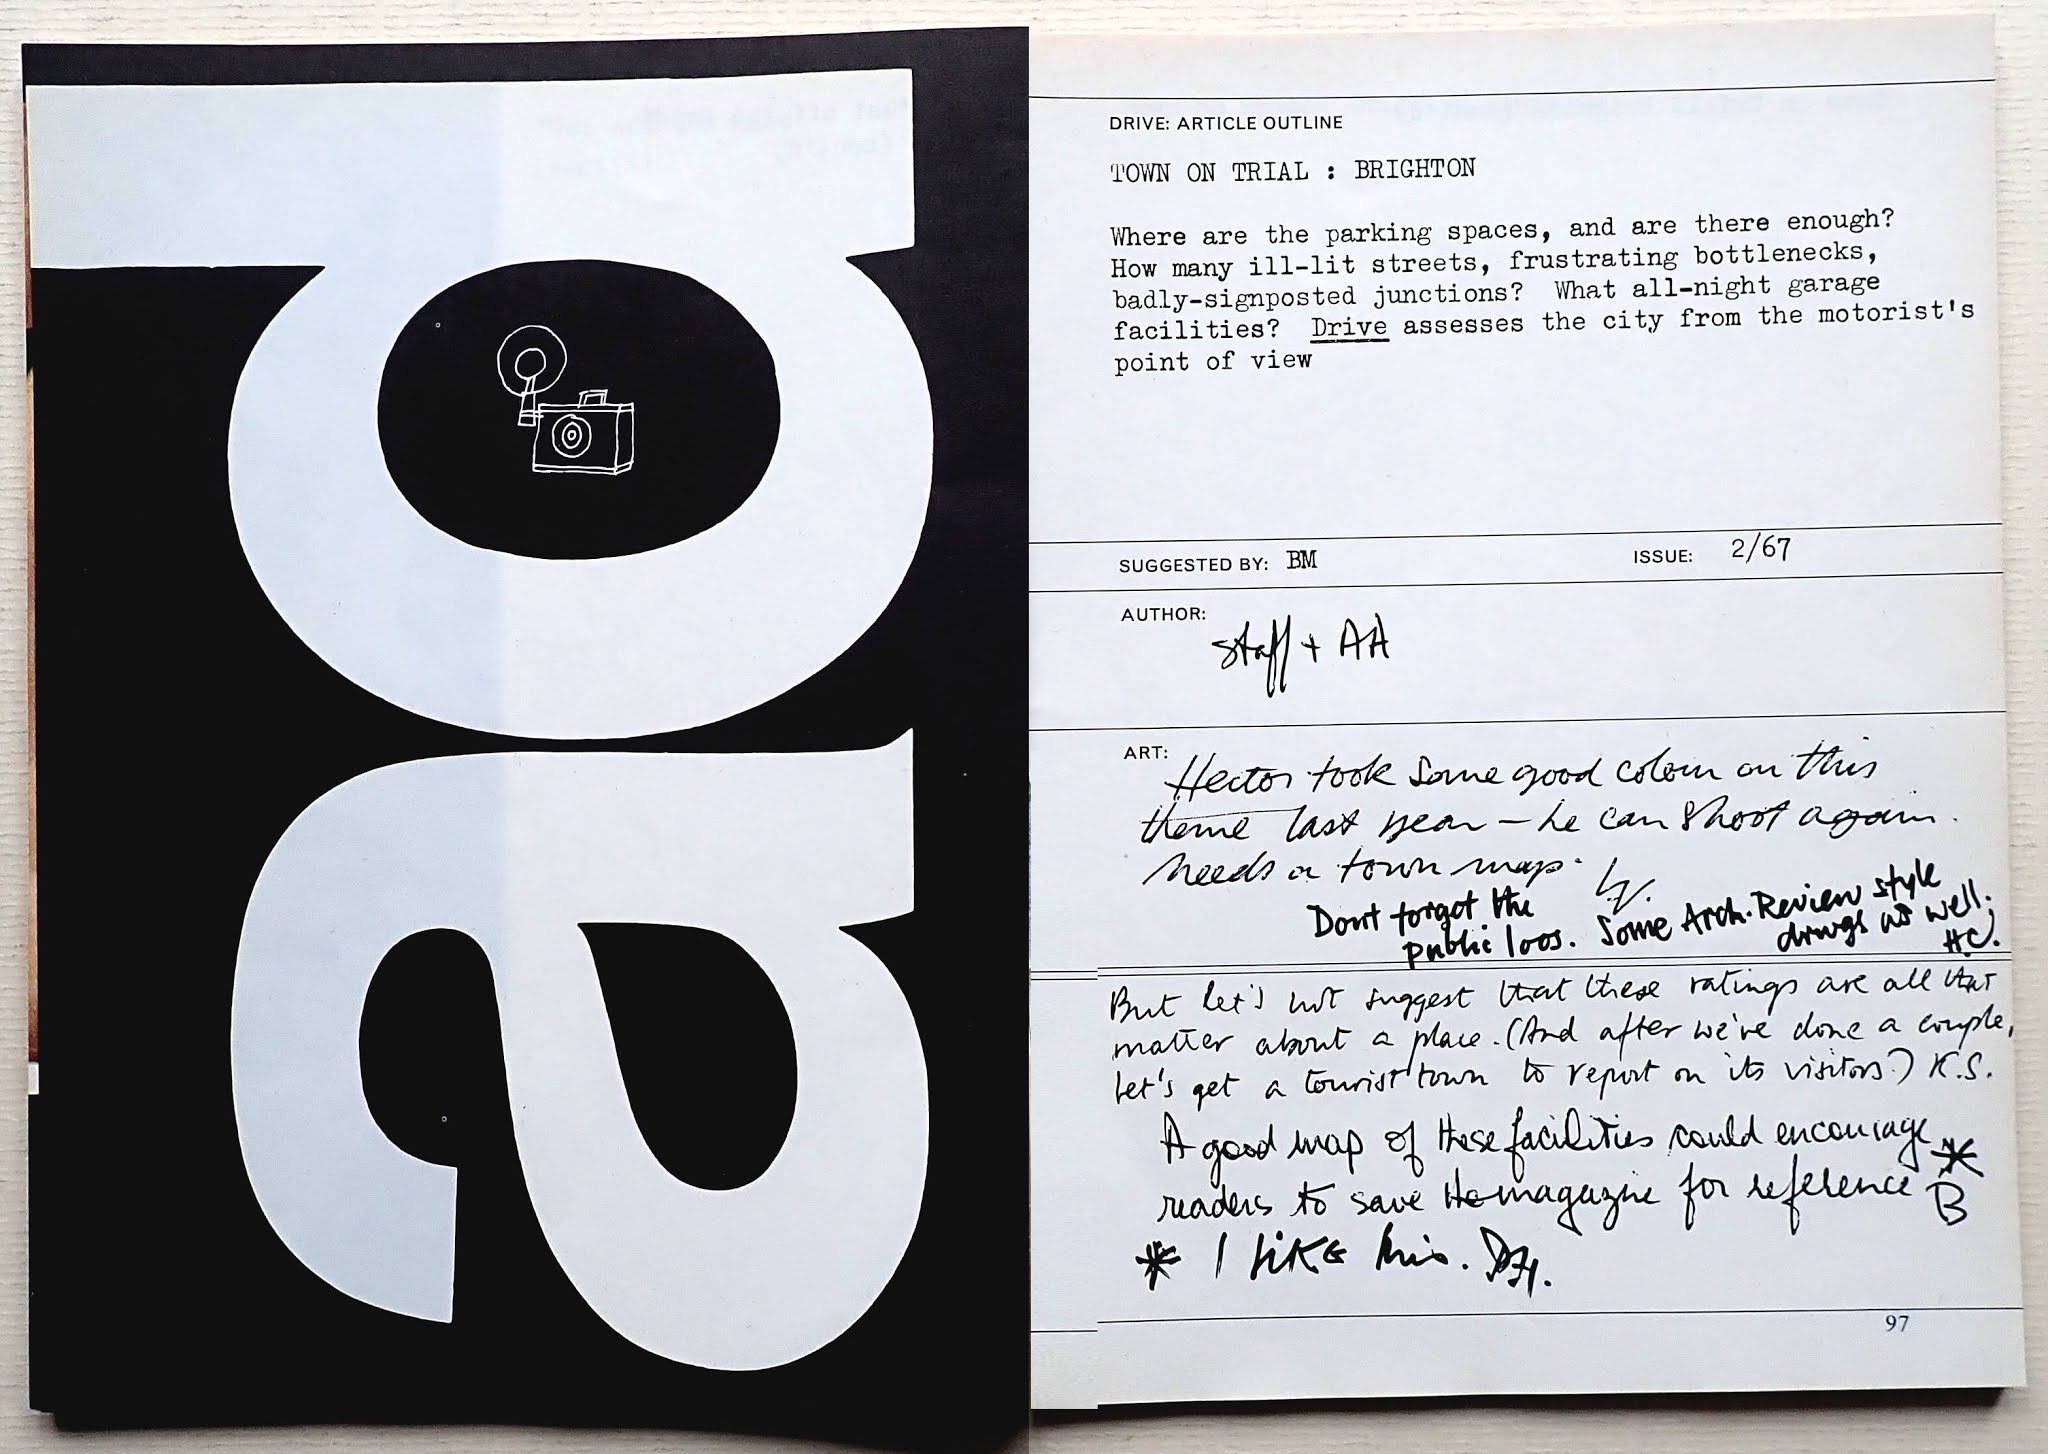 pa
DRIVE: ARTICLE OUTLINE
TOWN ON TRIAL : BRIGHTON
Where are the parking spaces, and are there enough?
How many ill-lit streets, frustrating bottlenecks,
badly-signposted junctions? What all-night garage
facilities? Drive assesses the city from the motorist's
point of view
SUGGESTED BY: BM
ISSUE: 2/67
AUTHOR:
Staff + AA
ART:
Hector took some good colour on this
theme last year – he can shoot again.
Needs a town map.
Dont forget the
public loos. Some Arch. Review style
drwgs as well.
HC.
But let's not suggest that these ratings are all that
matter about a place. (And after we've done a couple,
let's get a tourist town to report on its visitors?) K.S.
A good map of these facilities could encourage *
readers to save the magazine for reference B
* I LIKE this.
97